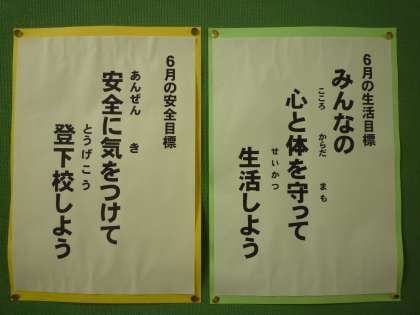 6月の生活目標
みんなの
こころ からだ まも
心と体を守って
せいかつ
生活しよう
6月の安全目標
あんぜん き
安全に気をつけて
とうげこう
登下校しよう